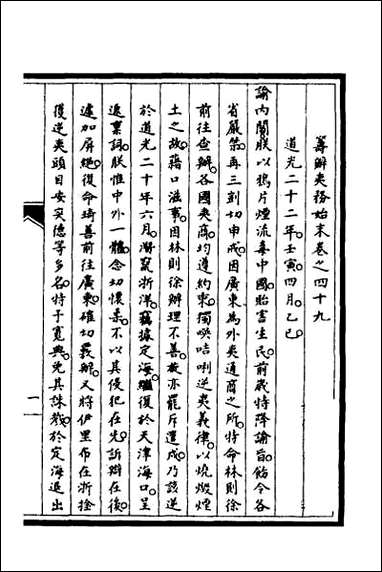 籌辦夷務始末卷之四十九
道光二十二年壬寅四月乙巳
諭內閣朕以鴉片煙流毒中國貽害生民前歲特降諭旨飭令各
省嚴禁再三剴切申戒因廣東為外夷通商之所特命林則徐
前往查辦各國夷商均遵約束獨㗸咭唎逆夷義律以燒燬煙
土之故藉口滋事因林則徐辦理不善故亦罷斥遣戍乃該逆
於道光二十年六月潛竄浙洋竊據定海繼復於天津海口呈
遞稟詞朕惟中外一體念切懷柔不以其侵犯在先訴辯在後
遽加屏絕復命琦善前往廣東確切籌辦又將伊里布在浙捦
獲逆夷頭目安突德等多名特予寬典免其誅戮於定海退出
一